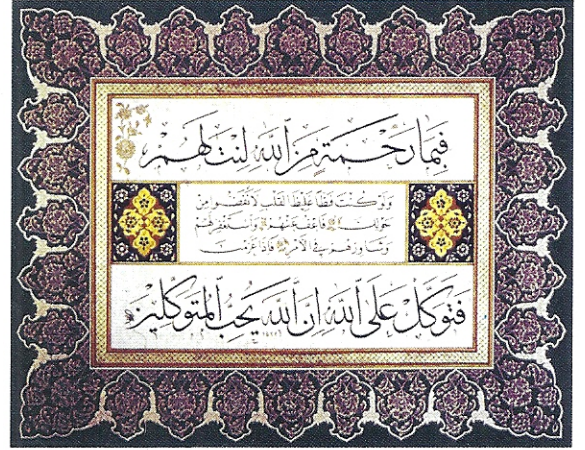 فَبِمَا رَحْمَةٍ مِنَ ٱللّٰهِ لِنْتَ لَهُمْ
وَلَوْ كُنْتَ فَظًّا غَلِيظَ الْقَلْبِ لَانْفَضُّوا مِنْ
حَوْلِكَ فَاعْفُ عَنْهُمْ وَاسْتَغْفِرْ لَهُمْ
وَشَاوِرْهُمْ فِي الْأَمْرِ فَإِذَا عَزَمْتَ
فَتَوَكَّلْ عَلَى ٱللّٰهِ إِنَّ ٱللّٰهَ يُحِبُّ الْمُتَوَكِّلِينَ